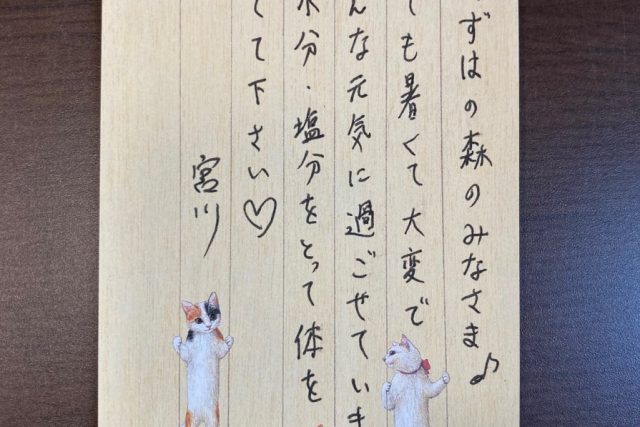 ずはの森のみなさま♪
ても暑くて大変で
んな元気に過ごせていき
水分・塩分をとって体を
てて下さい♡
宮川